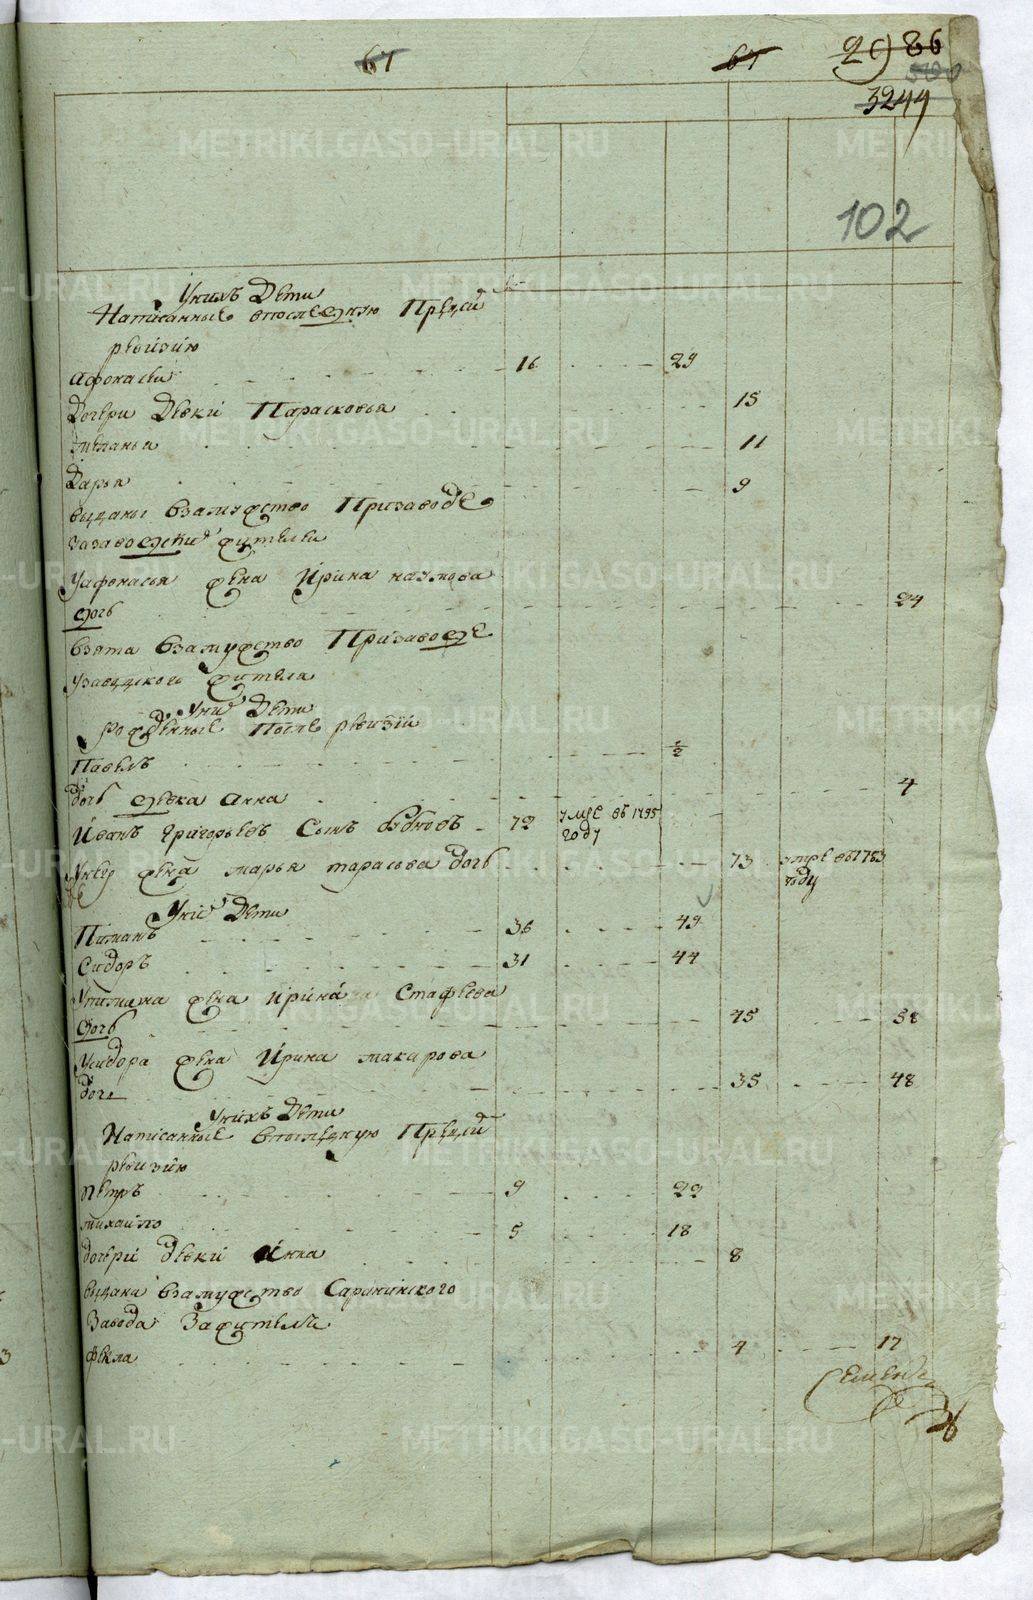 61 61 2986
3244
102
Унихъ Дети
Написанные впоследнюю Пред сей
ревизию
Афонасей 16 29
Дочери Девки Парасковья 15
Меланья 11
Дарья 9
выданы взамужство Призаводе
зазаводских жителей
Уафонасья жена Ирина наумова
дочь 24
взята взамужство Призаводе
узаводского жителя
Уних Дети
рожденные После ревизии
Павелъ 1/2
дочь девка Анна 4
Иванъ Григорьевъ Сынъ 72 умре въ 1795
году
Унево жена марья тарасова дочь 73 умре въ 1783
году
Уних Дети
Пиманъ 36 49
Сидоръ 31 44
Упимана жена ирина Стафьева
дочь 45 58
Усидора жена Ирина макарова
дочь 35 48
Унихъ Дети
Написанные впоследнюю Пред сей
ревизию
Петръ 9 22
михайло 5 18
дочери девки Анна 8
выдана взамужство Саранинского
Завода Зажителя
фекла 4 17